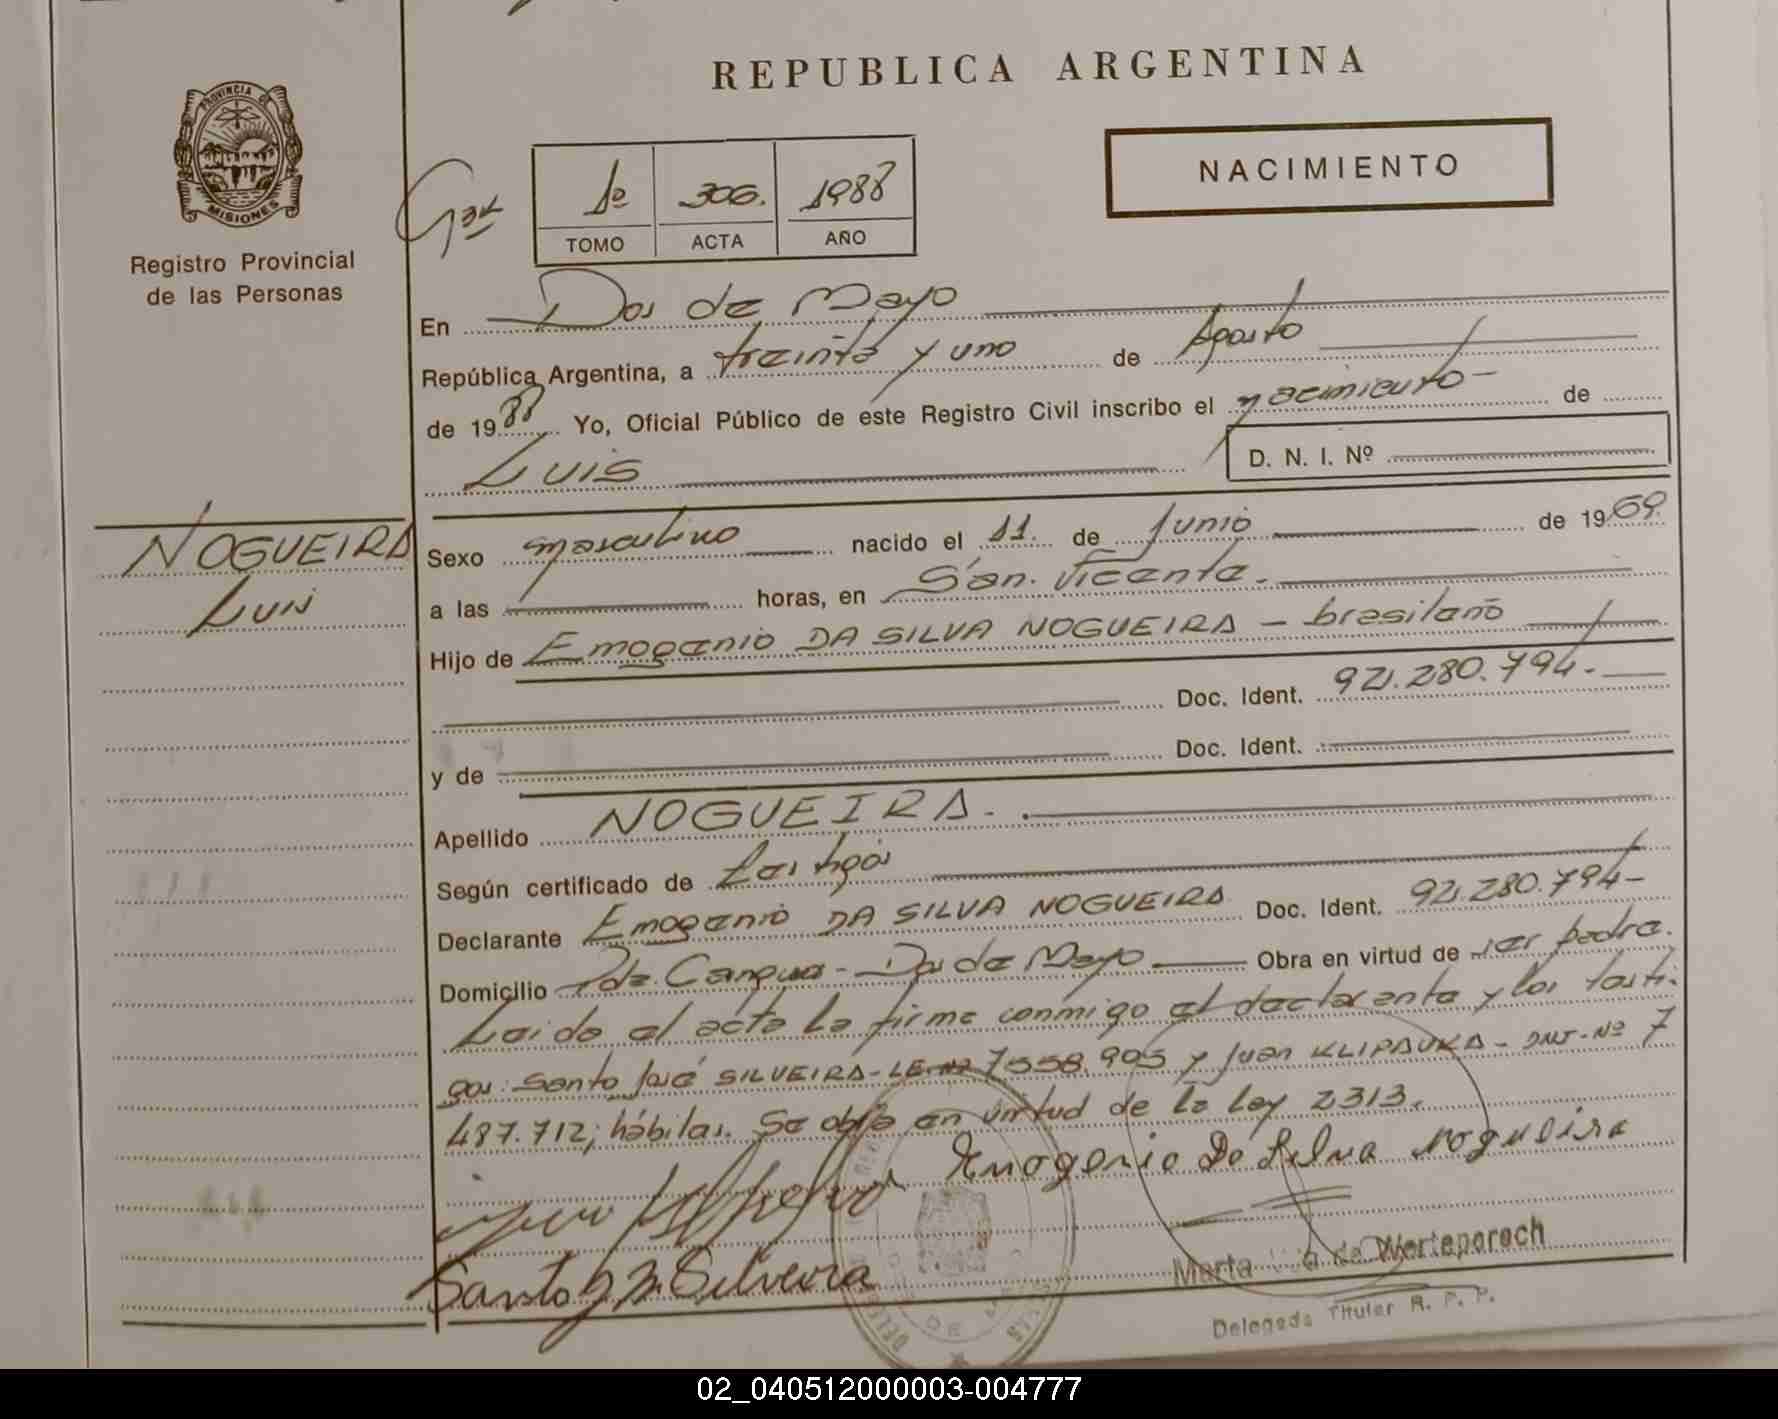 REPUBLICA ARGENTINA
PROVINCIA DE
MISIONES
Registro Provincial
de las Personas
NACIMIENTO
1º 306. 1988
TOMO ACTA AÑO
En Dos de Mayo
República Argentina, a treinta y uno de Agosto
de 1988 Yo, Oficial Público de este Registro Civil inscribo el nacimiento - de
Luis
D. N. I. Nº
NOGUEIRA
Luis
Sexo masculino nacido el 11. de Junio de 1969.
a las horas, en San. Vicente.
Hijo de Emogenio DA SILVA NOGUEIRA - brasilaño
Doc. Ident. 92.280.794.-
y de Doc. Ident.
Apellido NOGUEIRA.
Según certificado de Testigos
Declarante Emogenio DA SILVA NOGUEIRA Doc. Ident. 92.280.794-
Domicilio Pde. Cangua - Dos de Mayo Obra en virtud de ser padre.
Leida el acta la firma conmigo el declarante y los testi-
gos: Santo José SILVEIRA - LE Nº 7558.905 y Juan KLIPAUKA - DNI - Nº 7
487.712; hábiles. Se obra en virtud de la Ley 2313.
Emogenio Da Silva Nogueira
Santo J M Silveira
Marta de Werteparoch
Delegada Titular R. P. P.
02_040512000003-004777